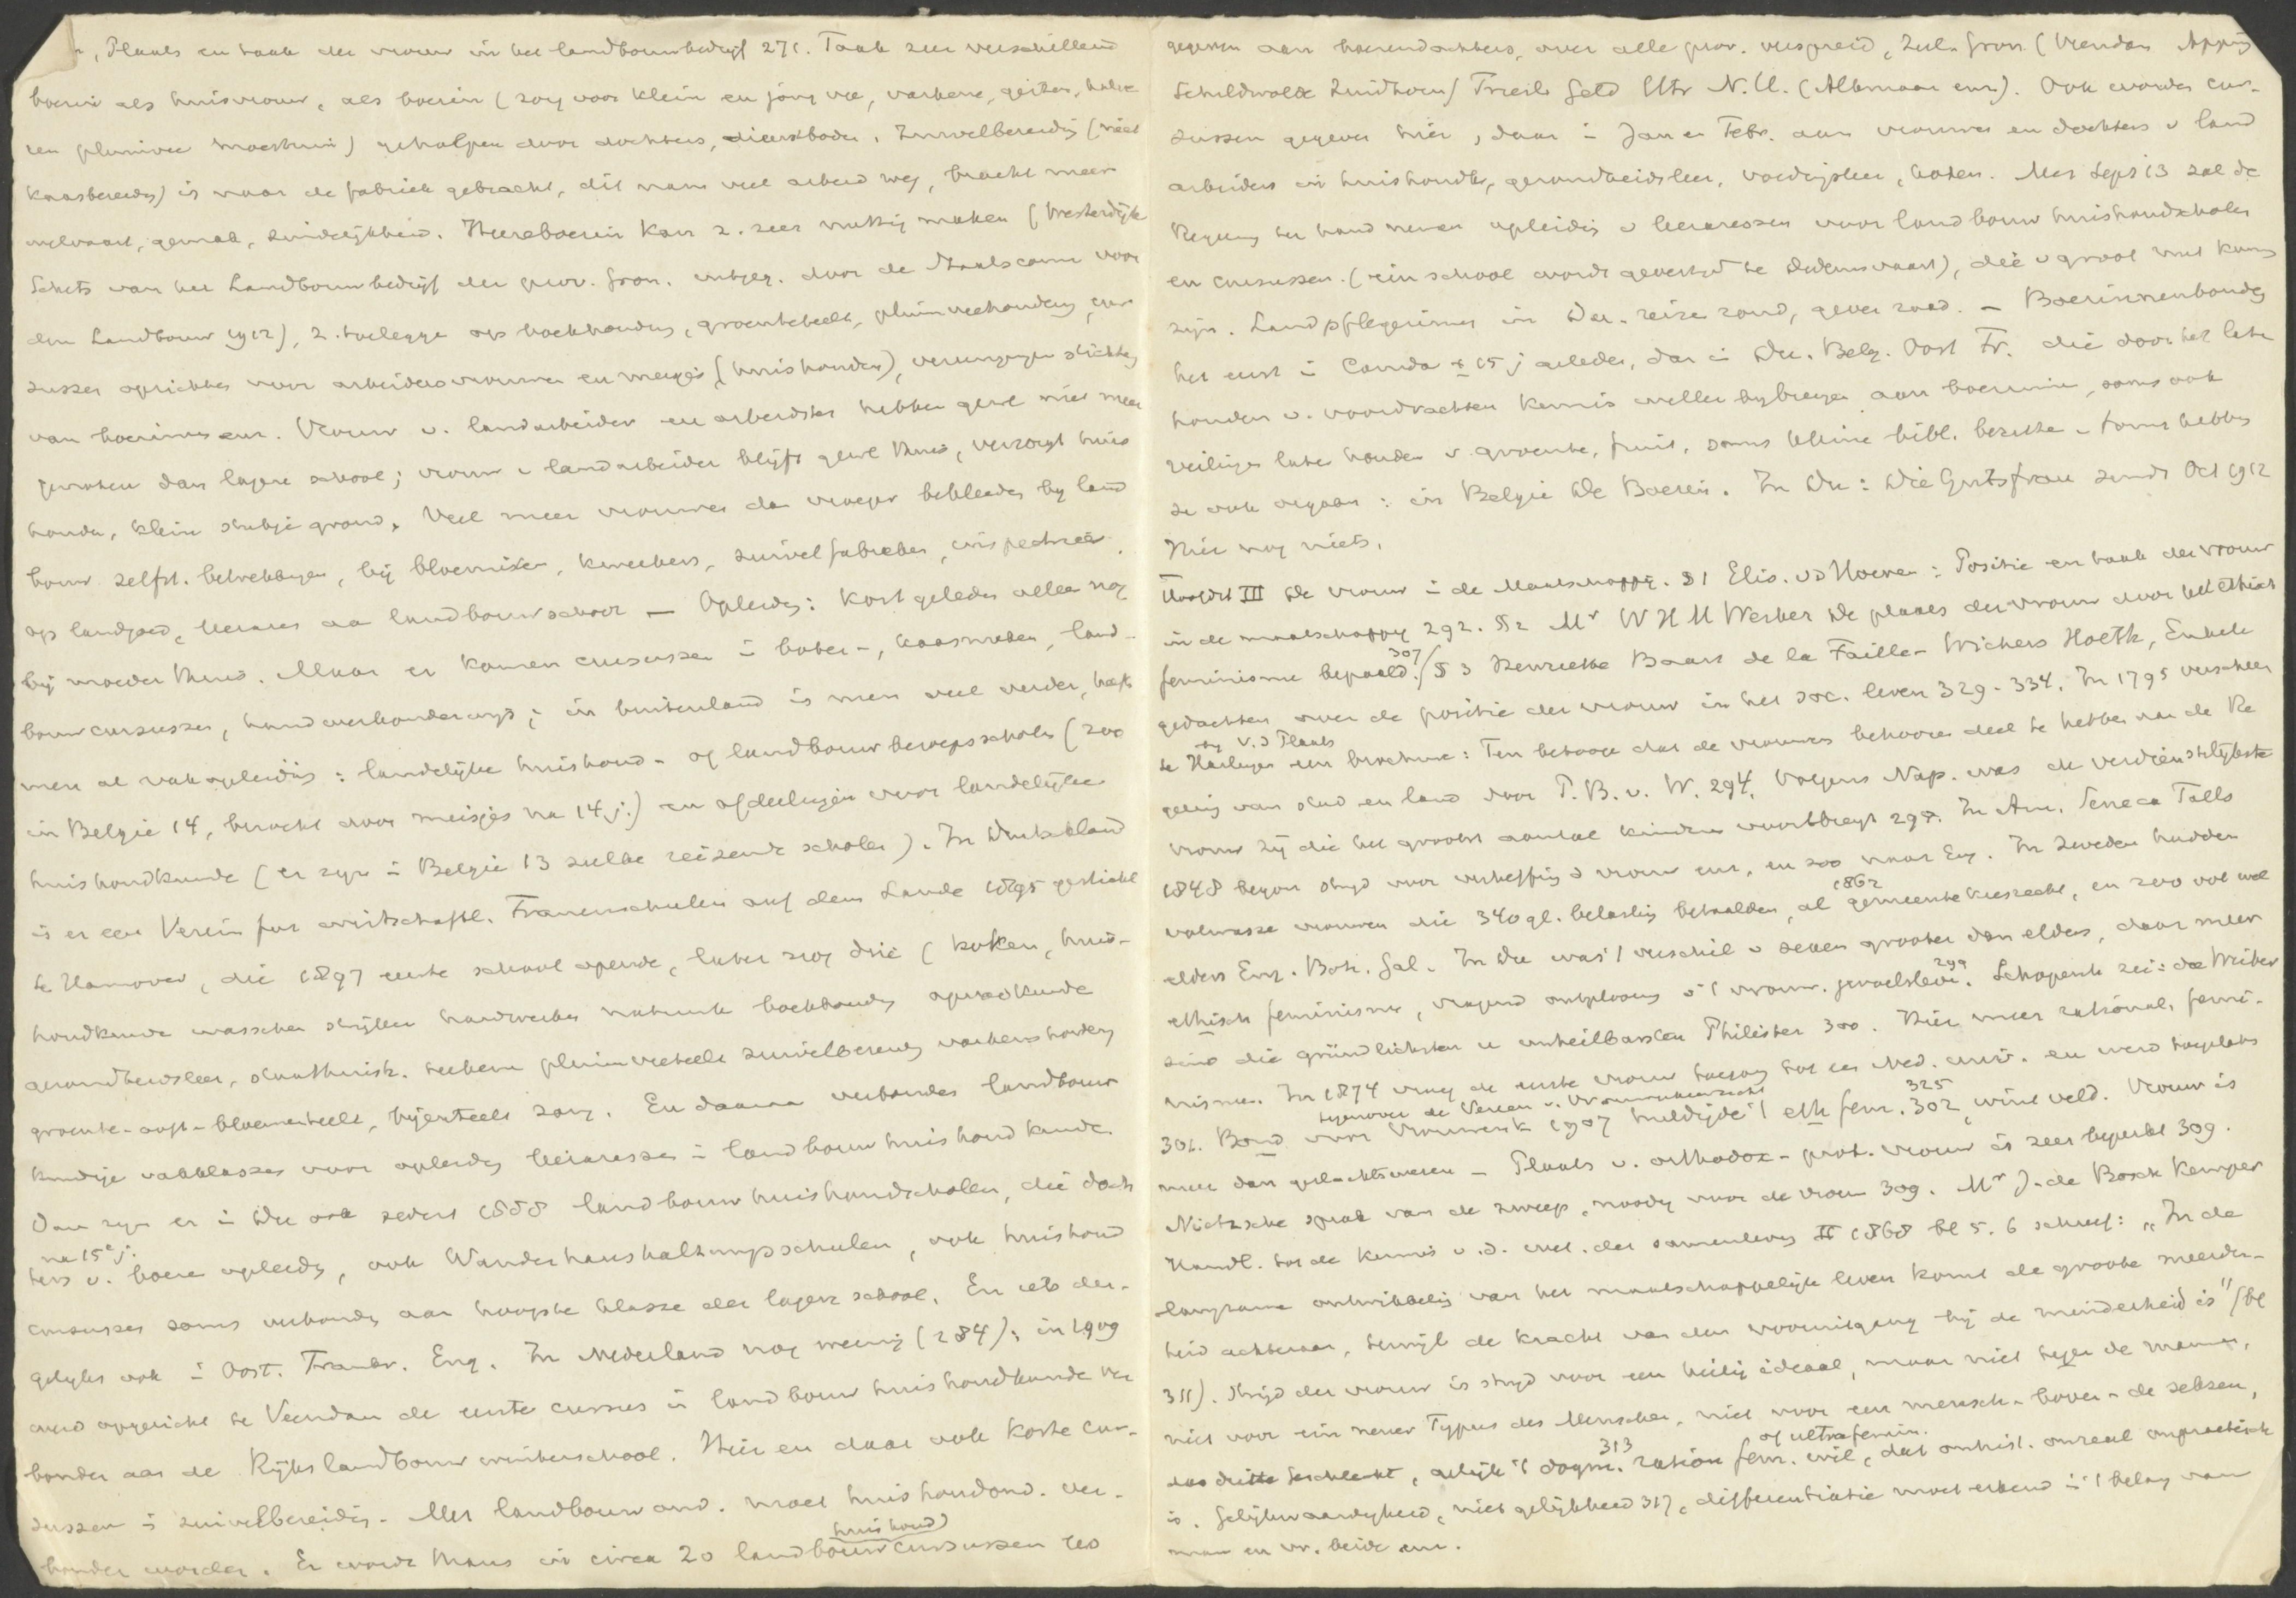 , Plaats en taak der vrouw in het landbouwbedrijf 271. Taak zeer verschillend
boerin als huisvrouw, als boerin (zorg voor klein en jong vee, varkens, geiten,
en pluimvee moestuin) geholpen door dochters, dienstboden. Zuivelbereidg (niet
kaasbereidg) is naar de fabriek gebracht, dit nam veel arbeid weg, bracht meer
welvaart, gemak, zindelijkheid. Heereboerin kan z. zeer nuttig maken (Westerdijk
Schets van het Landbouwbedrijf der prov. Gron. uitgeg. door de Staatscomm voor
den Landbouw 1912), z. toeleggen op boekhoudg, groenteteelt, pluimveehoudery, cur-
sussen oprichten voor arbeidersvrouwen en meisjes (huishouden), vereenigingen stichtg
van boerinnen enz. Vrouw v. landarbeider en arbeidster hebben gewl niet meer
genoten dan lagere school; vrouw v landarbeider blijft gewl thuis, verzorgt huis
houdn, klein stukje grond. Veel meer vrouwen dan vroeger bekleedn by land
bouw zelfst. betrekkingen, bij bloemisten, kweekers, zuivelfabrieken, inspectrice
op landgoed, leerares aan landbouwschool — Opleidg: kort geleden alleen nog
bij moeder thuis. Maar er komen cursussen i boter-, kaasmaken, land-
bouwcursussen, handwerkonderwys; in buitenland is men veel verder, heeft
men al vakopleiding: landelijke huishoud- of landbouwberoepsscholen (zoo
in Belgie 14, bezocht door meisjes na 14 j.) en afdeelingen voor landelijke
huishoudkunde (er zyn i Belgie 13 zulke reizende scholen). In Duitschland
is er een Verein fur wirtschaftl. Frauenschulen auf dem Lande 1895 gesticht
te Hannover, die 1897 eerste school opende, later nog drie (koken, huis-
houdkunde wasschen stryken handwerken natuurk boekhoudg opvoedkunde
gezondheidsleer, staathuish. teekenen pluimveeteelt zuivelbereidg varkenshoudery
groente-ooft-bloementeelt, bijenteelt zang. En daaraan verbonden landbouw
kundige vakklassen voor opleidg leeraressen i landbouwhuishoudkunde.
Dan zyn er i Du ook sedert 1858 landbouwhuishoudscholen, die doch
na 15e j.
ters v. boeren opleidn, ook Wanderhaushaltungsschulen, ook huishoud
cursussen soms verbondn aan hoogste klasse der lagere school. En iets der-
gelyks ook i Oost. Frankr. Eng. In Nederland nog weinig (284); in 1909
werd opgericht te Veendam de eerste cursus in landbouwhuishoudkunde ver
bonden aan de Rijkslandbouwwinterschool. Hier en daar ook korte cur-
sussen i zuivelbereiding. Met landbouwond. moet huishoudond. ver-
huishoud
bonden worden. Er wordt thans in circa 20 landbouwcursussen les
gegeven aan boerendochters, over alle prov. verspreid, Zeel. Gron. (Veendam Apping
Schildwolde Zuidhorn) Friesl. Geld Utr N.H. (Alkmaar enz). Ook worden cur-
sussen gegeven hier, daar i Jan en Febr. aan vrouwen en dochters v land
arbeiders in huishoudk, gezondheidsleer, voedingsleer, koken. Met Sept 13 zal de
Regeering ter hand nemen opleidg v leeraressen voor landbouwhuishoudscholen
en cursussen. (een school wordt gevestigd te Dedemsvaart), die v groot nut kunn
zijn. Landpflegerinnen in Du. reizen rond, geven raad. — Boerinnenbonden
het eerst i Canada ± 15 j geleden, dan i Du. Belg. Oost Fr. die door het laten
houden v. voordrachten kennis willen bybrengen aan boerinnen, soms ook
veilingen laten houden v. groente, fruit, soms kleine bibl. bezitten. Soms hebben
ze ook orgaan: in Belgie De Boerin. In Du: Die Gutsfrau sinds Oct 1912
Hier nog niets.
Hoofdst III De vrouw i de Maatschappy. § 1 Elis. vd Hoeven: Positie en taak der vrouw
in de maatschappy 292. § 2 Mr W H M Werker De plaats der vrouw door het ethisch
feminisme bepaald. 307/ § 3 Henriette Baart de la Faille-Wichers Hoeth, Enkele
gedachten over de positie der vrouw in het soc. leven 329-334. In 1795 verscheen
by V.d Plaats
te Harlingen een brochure: Ten betooge dat de vrouwen behooren deel te hebben aan de Re
gering van stad en land door P. B. v. W. 294. Volgens Nap. was de verdienstelijkste
vrouw zij die het grootst aantal kinderen voortbrengt 298. In Am. Seneca Falls
1848 begon stryd voor verheffing d vrouw enz, en zoo naar Eng. In Zweden hadden
1862
volwassen vrouwen die 340 gl. belasting betaalden, al gemeentekiesrecht, en zoo ook wel
elders Eng. Boh. Gal. In Du was 't verschil v sexen grooter dan elders, daar meer
ethisch feminisme, vragend ontplooiing v 't vrouw. gevoelsleven 299. Schopenh zei: die Weiber
sind die gründlichsten u unheilbarsten Philister 300. Hier meer rational. femi-
nisme. In 1874 vroeg de eerste vrouw toegang tot een Ned. univ. en werd toegelaten
tegenover de Vereen v. Vrouwenkiesrecht
301. Bond voor Vrouwenk 1907 huldigde 't eth fem. 302, 325 wint veld. Vrouw is
meer dan geslachtswezen — Plaats v. orthodox-prot. vrouw is zeer beperkt 309.
Nietzsche sprak van de zweep, noodig voor de vrouw 309. Mr J. de Bosch Kemper
Handl. tot de kennis v. d. wet. der samenleving II 1868 bl 5. 6 schreef: „In de
langzame ontwikkeling van het maatschappelijk leven komt de groote meerder-
heid achteraan, terwijl de kracht van den vooruitgang bij de minderheid is" (bl
311). Stryd der vrouw is stryd voor een heilig ideaal, maar niet tegen de mannen,
niet voor ein neuer Typus des Menschen, niet voor een mensch-boven-de seksen,
of ultrafemin.
das dritte Geschlecht, gelijk 't dogm. 313 ration fem. wil, dat onhist. onreael onpractisch
is. Gelykwaardigheid, niet gelijkheid 317, differentiatie moet erkend i 't belang van
man en vr. beide enz.